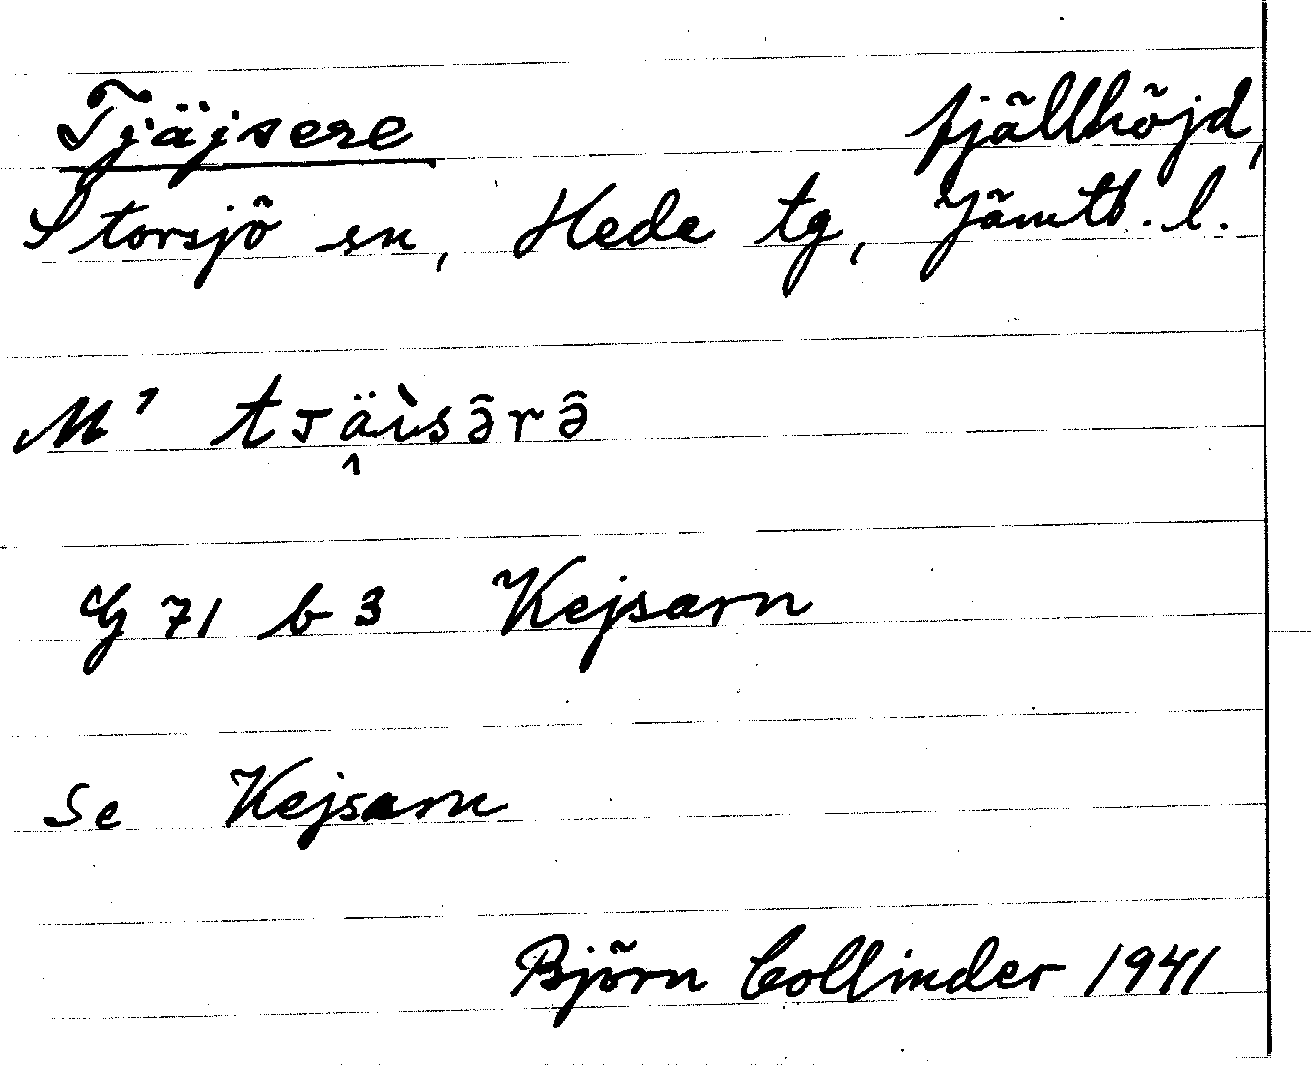 Tjäjsere fjällhöjd,
Storsjö sn, Hede tg, Jämtl. l.
M' tᴊäìsə̂rə̂
G 71 b 3 Kejsarn
Se Kejsarn
Björn Collinder 1941